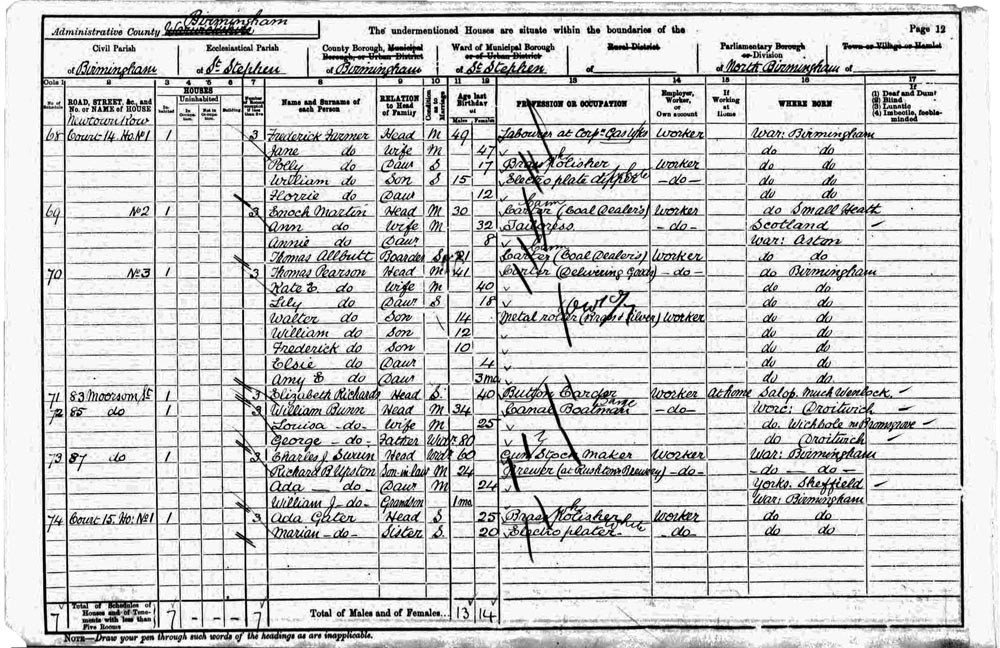 Birmingham
Administrative County Warwickshire The undermentioned Houses are situate within the boundaries of the Page 12
Civil Parish Ecclesiastical Parish County Borough, Municipal Borough, or Urban District Ward of Municipal Borough or of Urban District Rural District Parliamentary Borough or Division Town or Village or Hamlet
of Birmingham of St Stephen of Birmingham of St Stephen of of North Birmingham of
Cols 1 2 3 4 5 6 7 8 9 10 11 12 13 14 15 16 17
No. of Schedule ROAD, STREET, &c., and No. or NAME of HOUSE HOUSES Inhabited Uninhabited In Occupation Not in Occupation Building Name and Surname of each Person RELATION to Head of Family Condition as to Marriage Age last Birthday of Males Females PROFESSION OR OCCUPATION Employer, Worker, or Own account If Working at Home WHERE BORN If (1) Deaf and Dumb (2) Blind (3) Lunatic (4) Imbecile, feeble-minded
Newtown Row
68 Court 14. Ho. No 1 1 3 Frederick Farmer Head M 49 Labourer at Corpn Gas Wks Worker War: Birmingham
Jane do Wife M 47 do do
Polly do Daur S 17 Brass Polisher Worker do do
William do Son S 15 Electro plate dipper -do- do do
Florrie do Daur 12 do do
69 No 2 1 3 Enoch Martin Head M 30 Carter (Coal Dealer's) Worker do Small Heath
Ann do Wife M 32 Tailoress -do- Scotland
Annie do Daur 8 War: Aston
Thomas Allbutt Boarder S 21 Carter (Coal Dealer's) Worker do do
70 No 3 1 3 Thomas Pearson Head M 41 Carter (Delivering Goods) -do- do Birmingham
Kate E. do Wife M 40 do do
Lily do Daur S 18 do do
Walter do Son 14 Metal roller Silver) Worker do do
William do Son 12 do do
Frederick do Son 10 do do
Elsie do Daur 4 do do
Amy E do Daur 3 mo do do
71 83 Moorsom St 1 3 Elizabeth Richards Head S. 40 Button Carder Worker At home Salop. Much Wenlock
72 85 do 1 3 William Bunn Head M 34 Canal Boatman -do- Worc: Droitwich
Louisa -do- Wife M 25 do. nr Bromsgrove
George -do- Father Widr 80 do Droitwich
73 87 do 1 3 Charles J. Head Widr 60 Gun Stock maker Worker War: Birmingham
Richard B. Upston Son-in-law M 24 Brewer (at Rushton's Brewery) -do- -do- do-
Ada do- Daur M 24 Yorks. Sheffield
William J -do- Grandson 1 mo War: Birmingham
74 Court 15. Ho: No 1 1 3 Ada Gater Head S 25 Brass Polisher Worker do do
Marian -do- Sister S. 20 Electro plater do- do do
7 Total of Schedules of Houses and of Tenements with less than Five Rooms 7 - - - 7 Total of Males and of Females... 13 14
NOTE—Draw your pen through such words of the headings as are inapplicable.